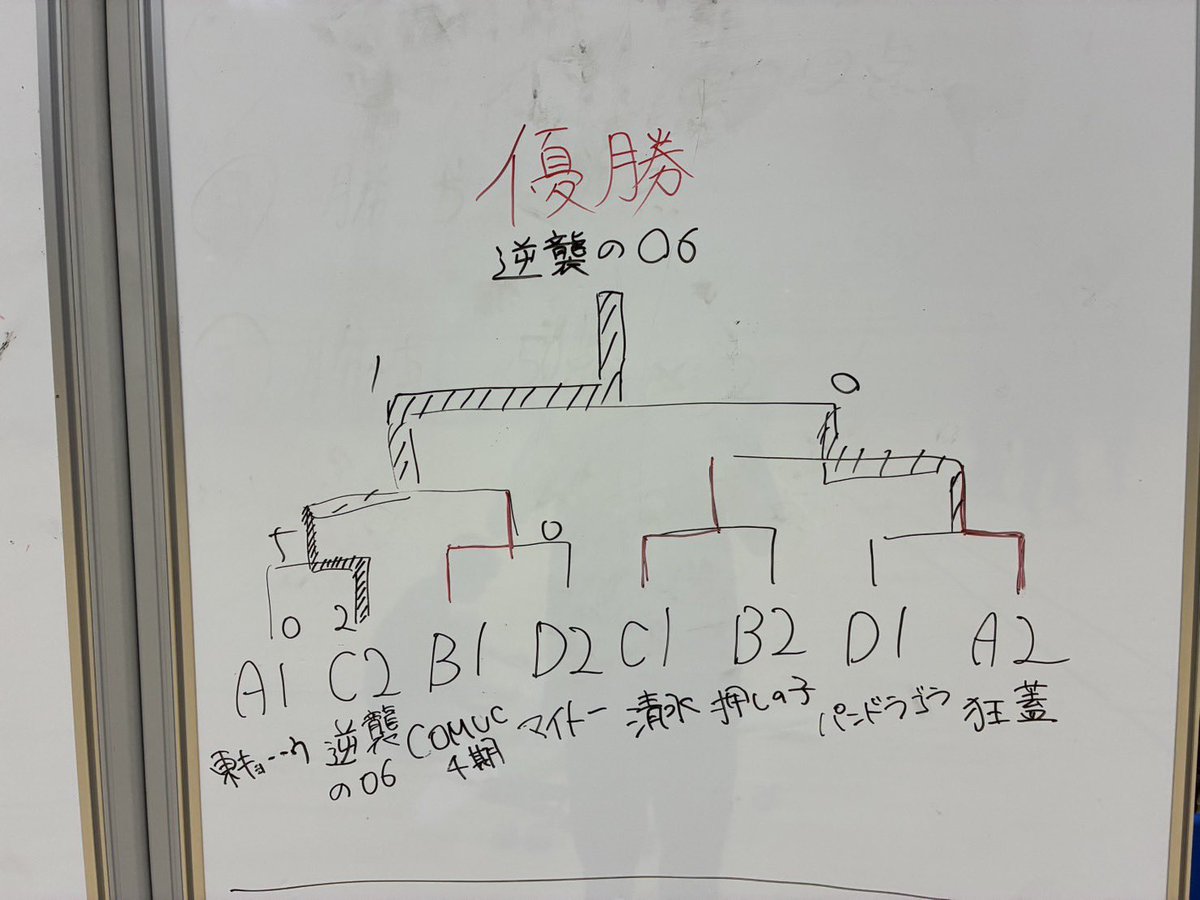 優勝
逆襲の06
1
0
5
0
0
2
A1 C2 B1 D2 C1 B2 D1 A2
東キョーウ
逆襲
の06
COMUC
4期
マイトー
清水
押しの子
パンドラゴラ
狂蓋